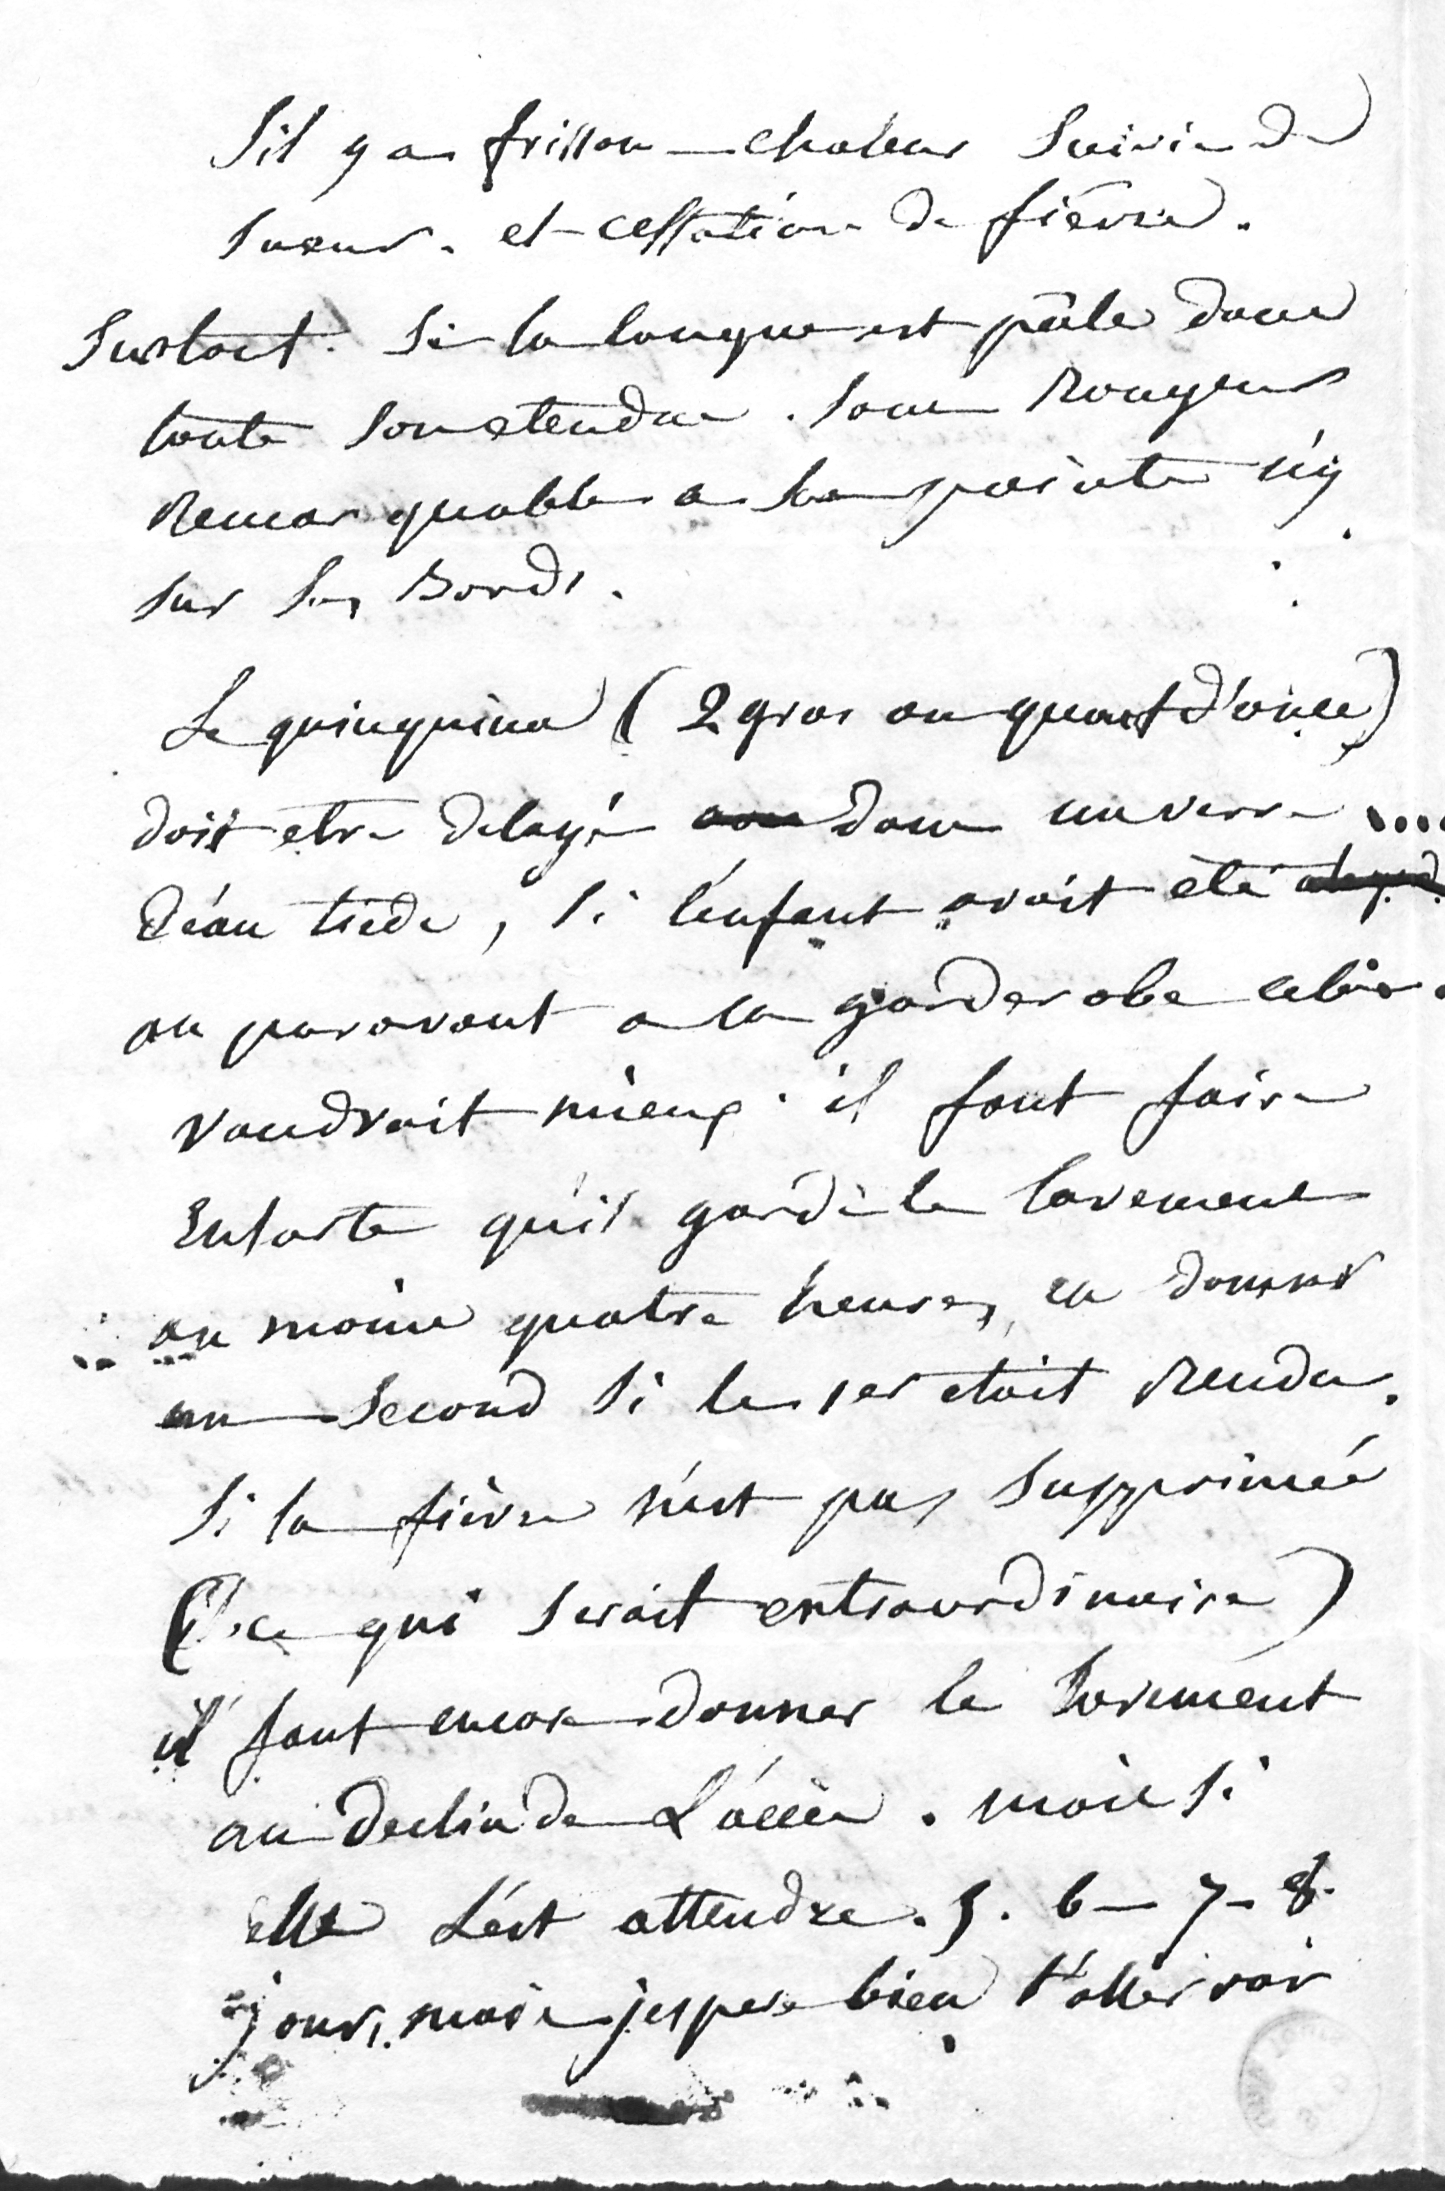 S'il y a frisson – chaleur suivie de
sueur. et cessation de fièvre.
Surtout. Si la langue est pâle dans
toute son etendue. sans Rougeur
Remarquable a sa pointe n'y
sur ses Bords.
Le quinquina (2 gros ou quart d'once)
doit etre delayé dans un verre
d'éau tiede, si l'enfant avoit été
au paravant a la garderobe cela
vaudroit mieux. il faut faire
Ensorte qu'il garde le lavement
au moins quatre heures, en donner
un second si le 1er etoit Rendu.
Si la fièvre n'est pas supprimée
(ce qui serait extraordinaire)
il faut encore donner le lavement
au declin de L'accès. mais si
elle L'est attendre. 5. 6 – 7 – 8.
jours, mais j'espere bien t'aller voir